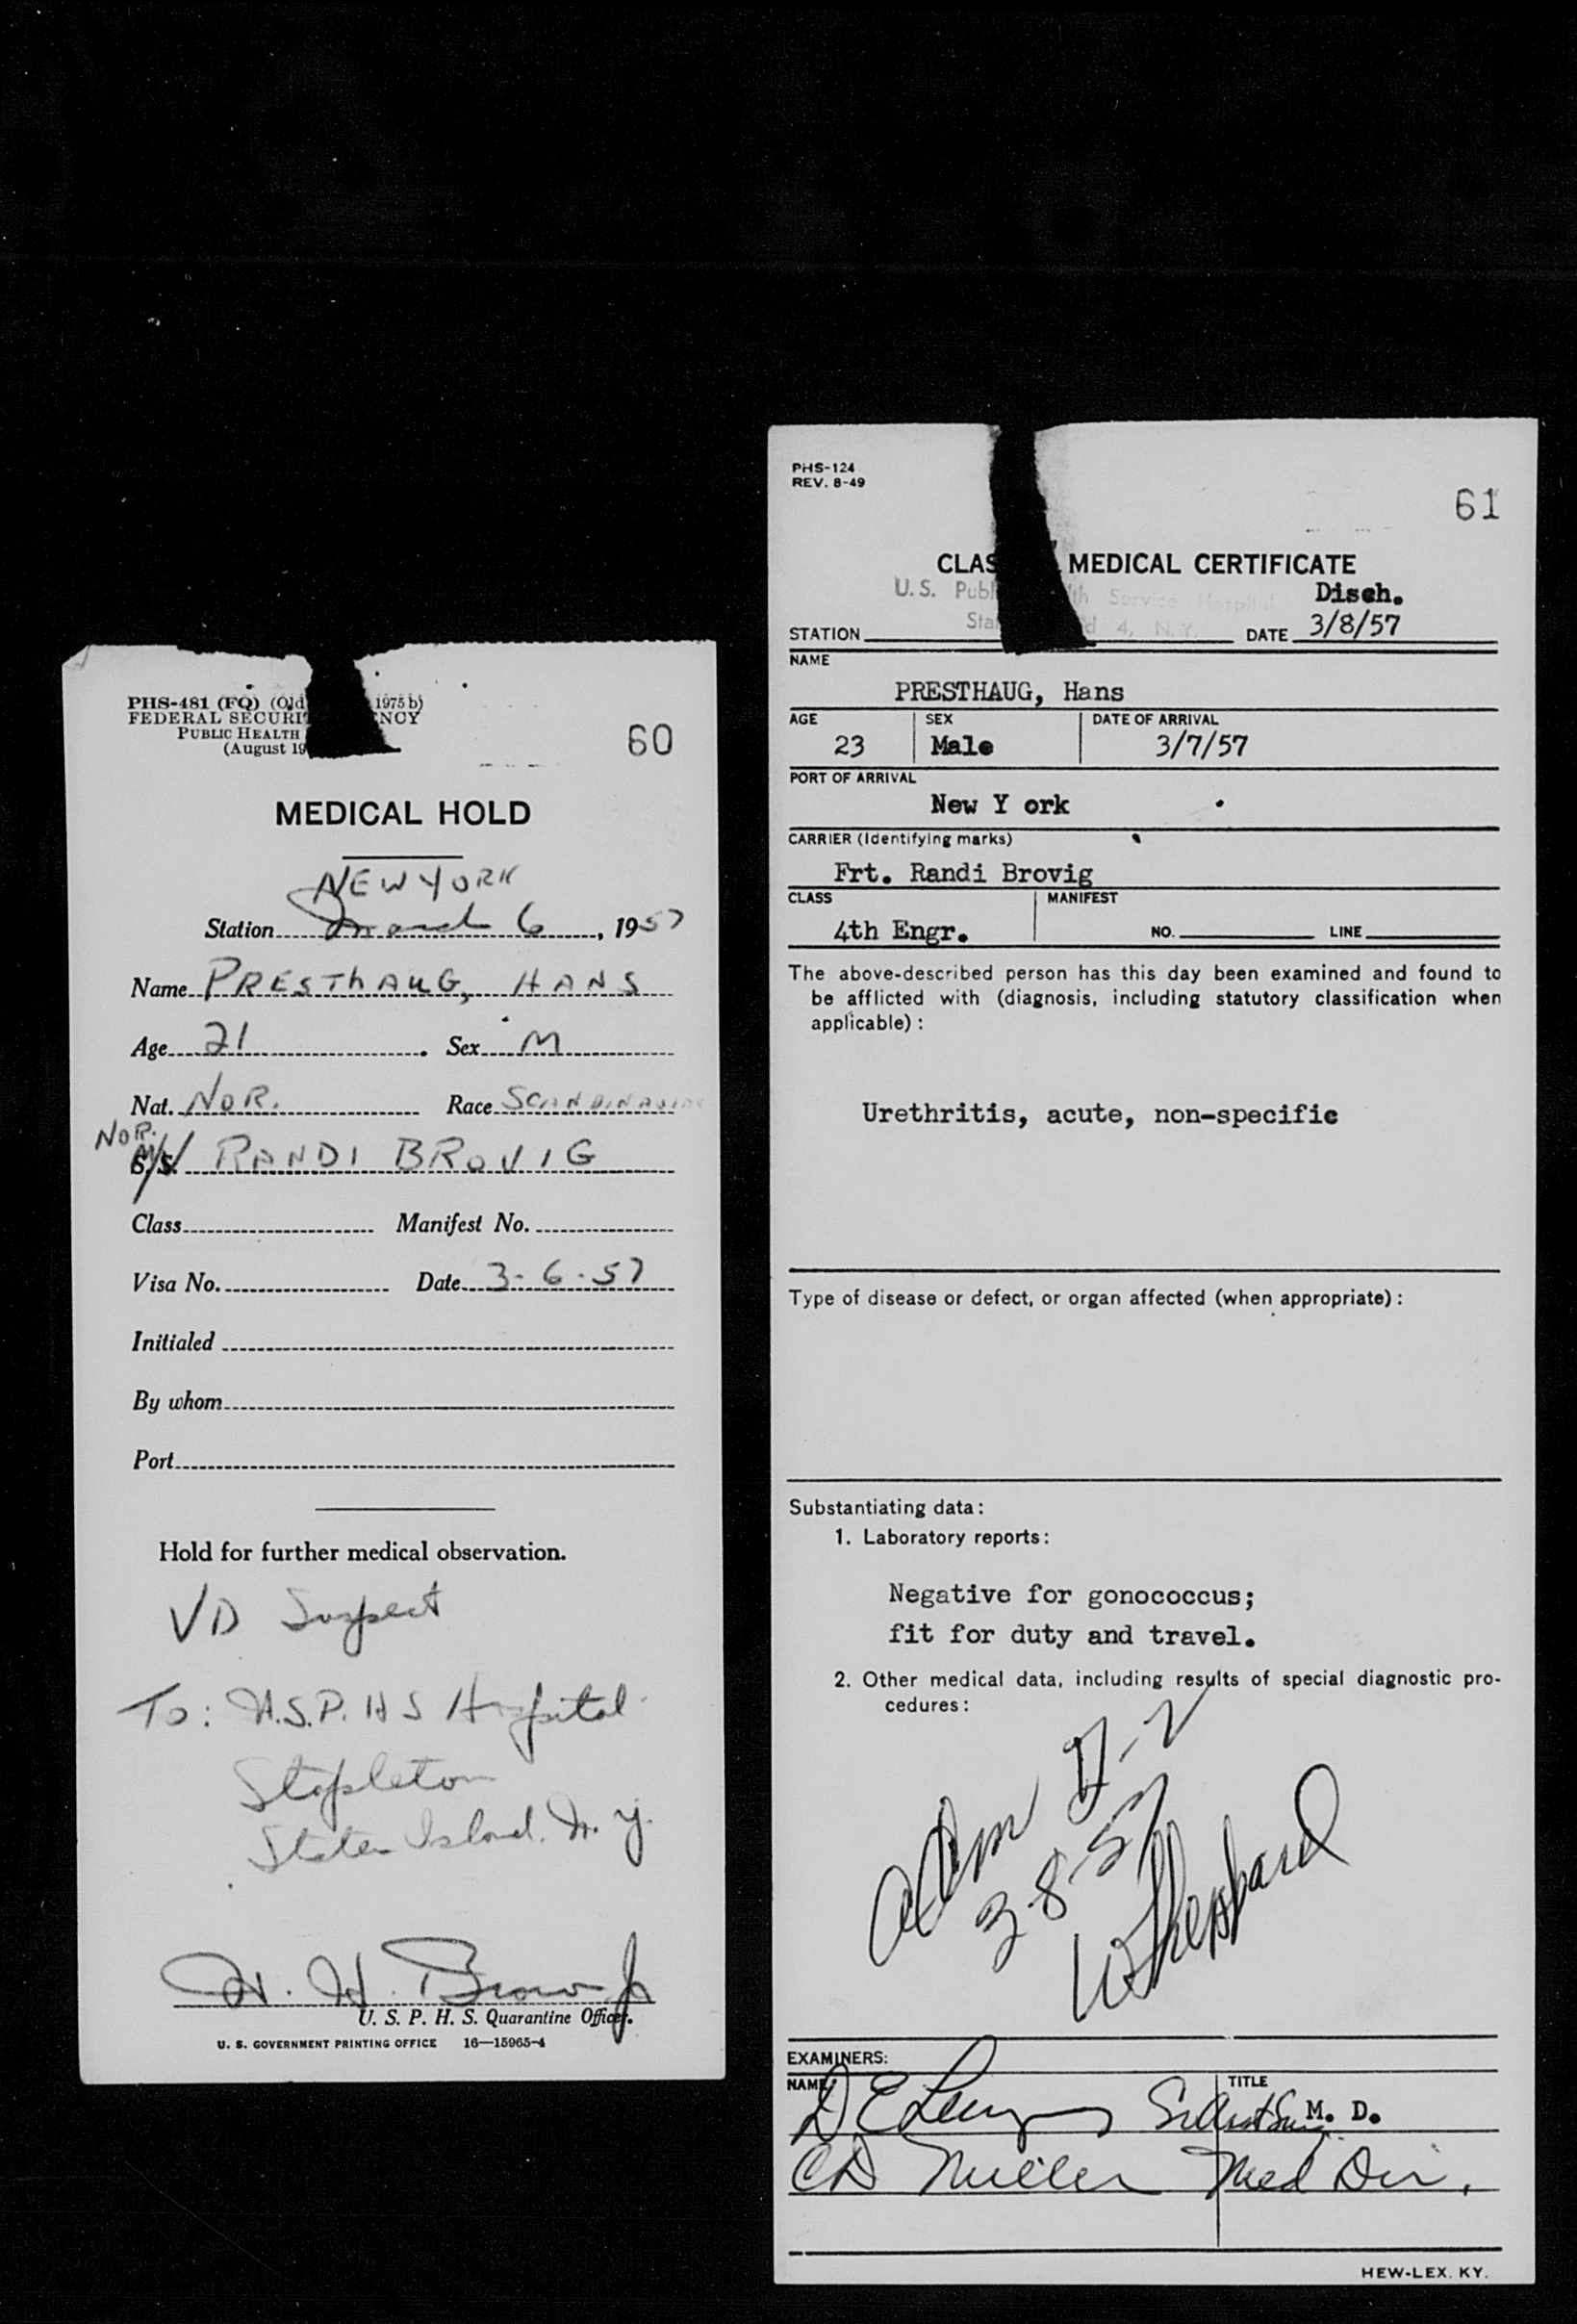 PHS-481 (FQ) (Old 1975 b)
FEDERAL SECURI NCY
PUBLIC HEALTH
(August 19
60
MEDICAL HOLD
NEW YORK
Station March 6, 1957
Name PRESTHAUG, HANS
Age 21 . Sex M
Nat. NOR. Race SCANDINAVIAN
NOR.
M/V RANDI BROVIG
Class Manifest No.
Visa No. Date 3-6-57
Initialed
By whom
Port
Hold for further medical observation.
VD Suspect
To: U.S.P.H S Hospital
Stapleton
Staten Island, N. Y.
H. H. Brown Jr
U. S. P. H. S. Quarantine Officer.
U. S. GOVERNMENT PRINTING OFFICE 16—15965-4
PHS-124
REV. 8-49
61
CLAS MEDICAL CERTIFICATE
U.S. Publ lth Service Hospital Disch.
STATION Sta d 4, N.Y. DATE 3/8/57
NAME
PRESTHAUG, Hans
AGE SEX DATE OF ARRIVAL
23 Male 3/7/57
PORT OF ARRIVAL
New Y ork
CARRIER (Identifying marks)
Frt. Randi Brovig
CLASS MANIFEST
4th Engr. NO. LINE
The above-described person has this day been examined and found to
be afflicted with (diagnosis, including statutory classification when
applicable) :
Urethritis, acute, non-specific
Type of disease or defect, or organ affected (when appropriate) :
Substantiating data :
1. Laboratory reports :
Negative for gonococcus;
fit for duty and travel.
2. Other medical data, including results of special diagnostic pro-
cedures :
3-8-57
WSheppard
EXAMINERS:
NAME TITLE
D E M. D.
CD Miller Med Dir.
HEW-LEX. KY.